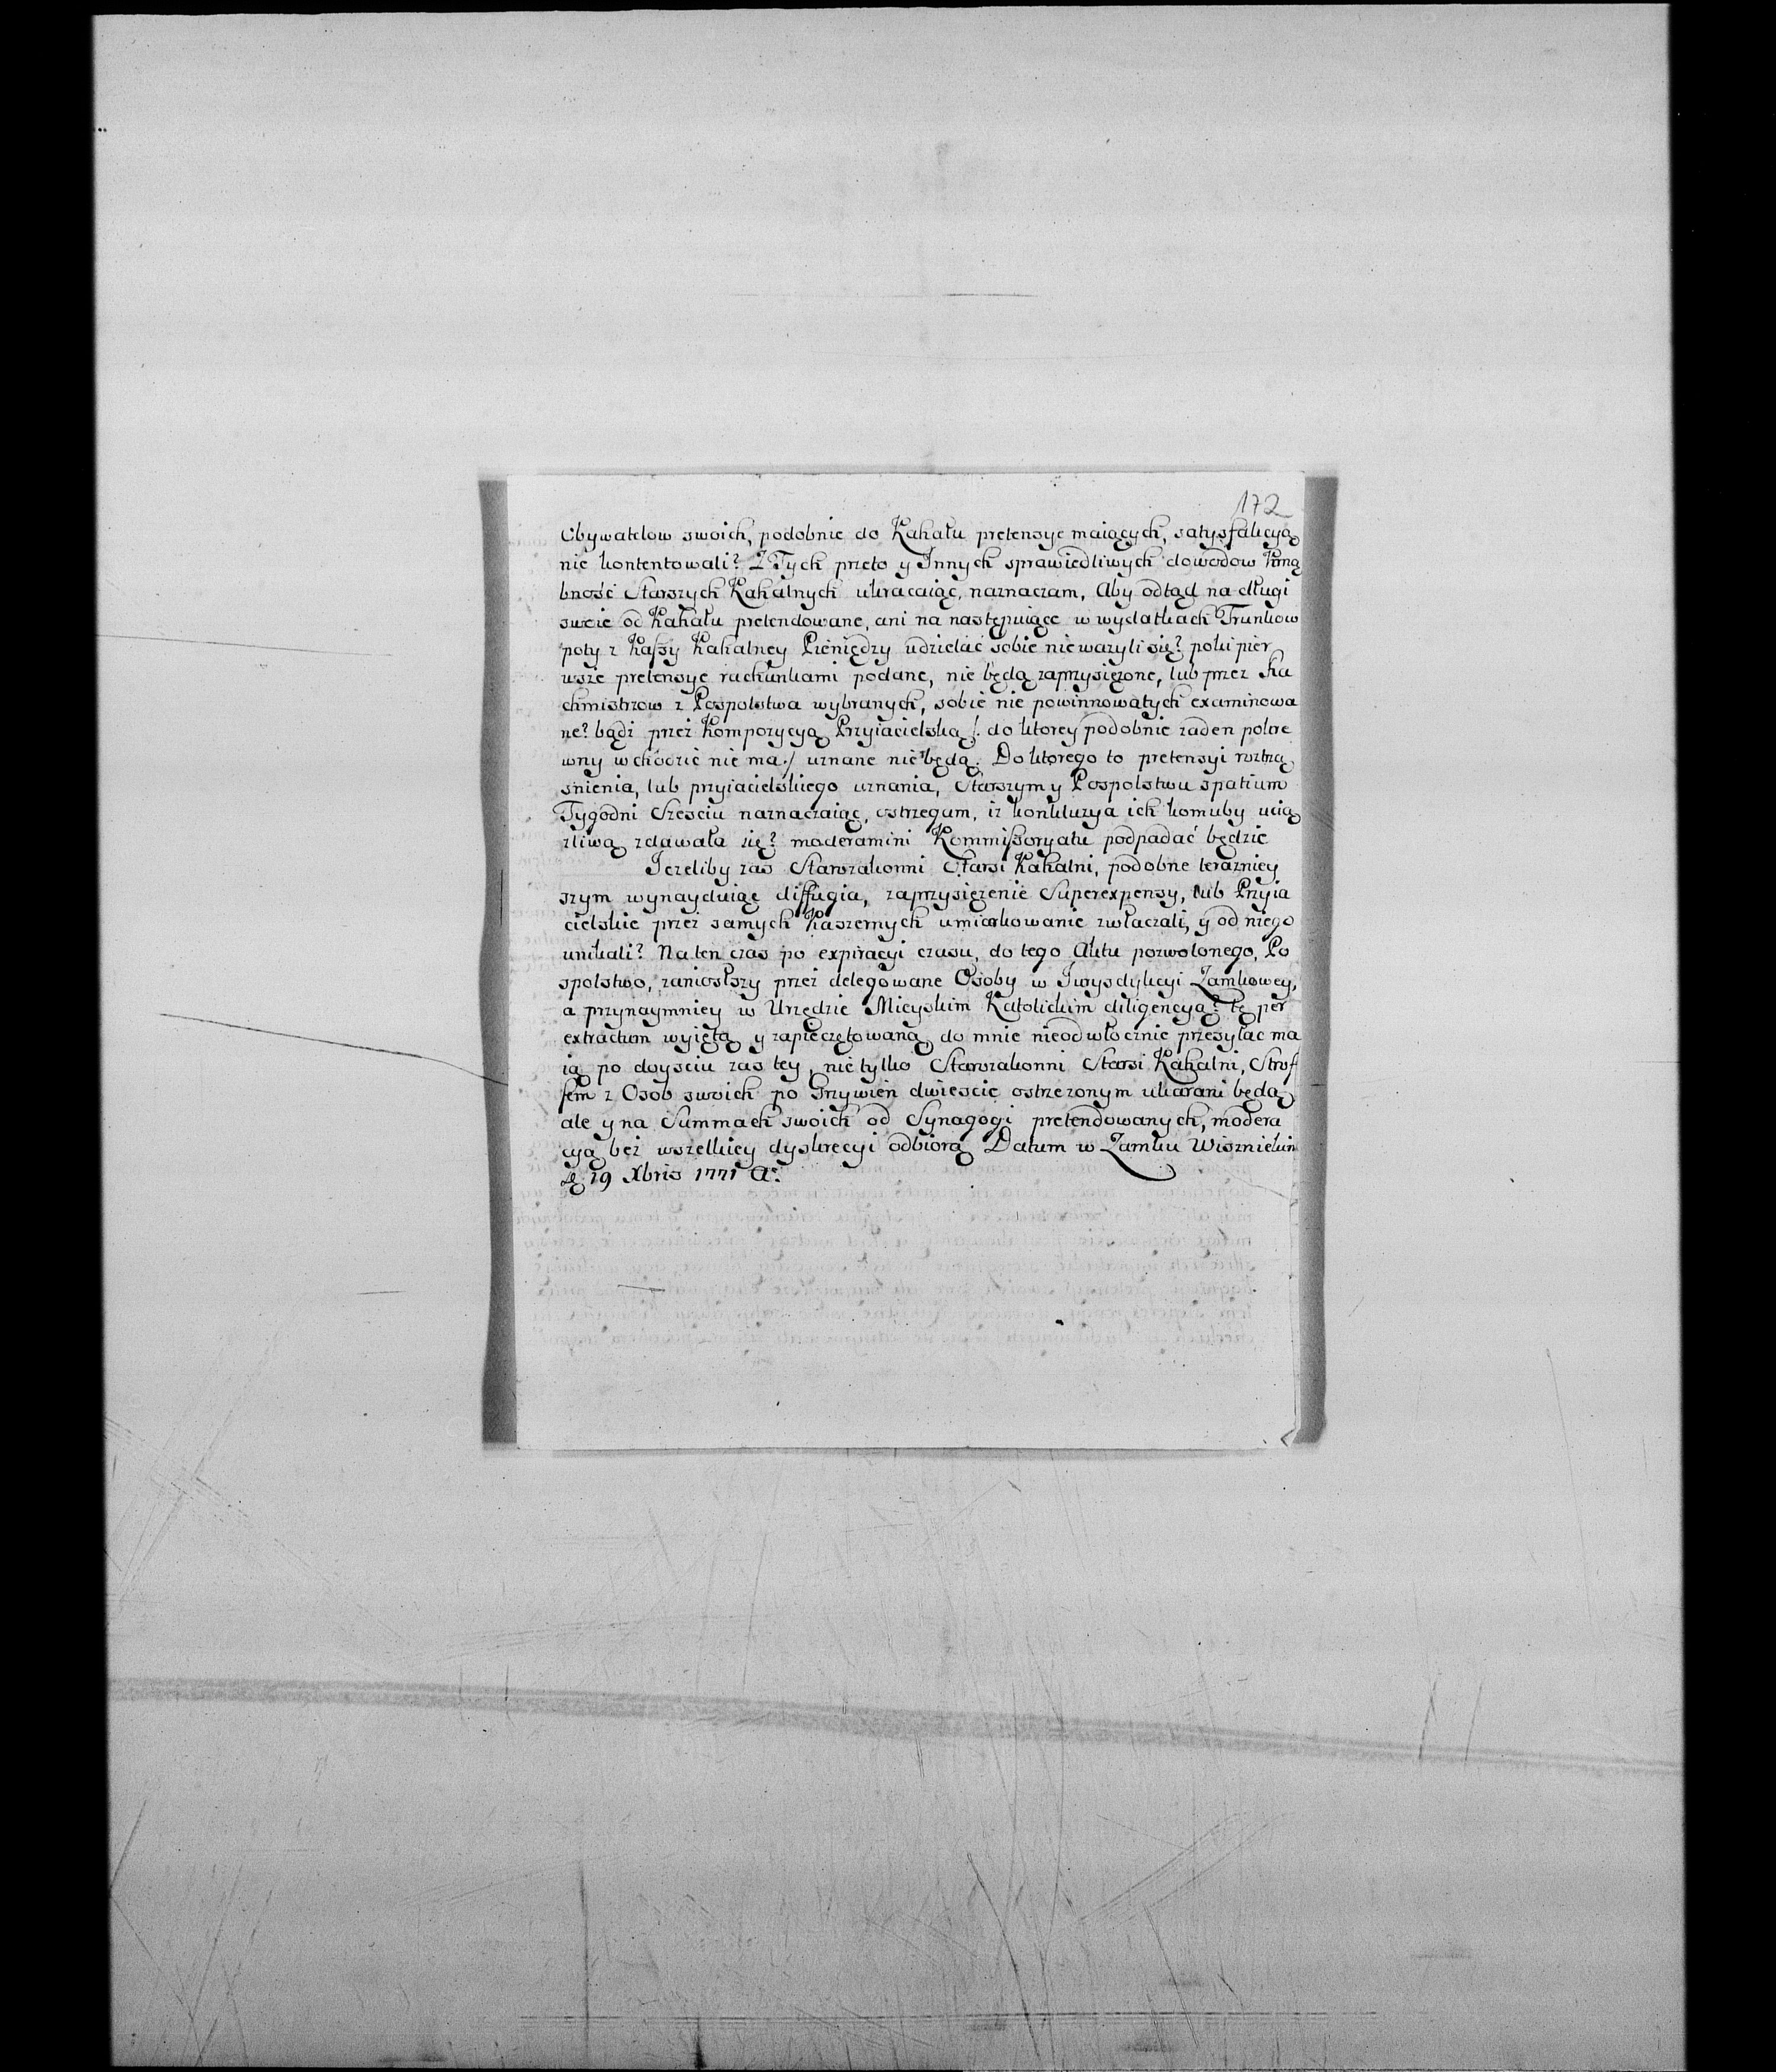 172
Obywatelow swoich, podobnie do Kahału pretensye maiących, satysfakcyą
nie kontentowali? Z Tych przeto y Innych sprawiedliwych dowodow Krną
bność Starszych Kahalnych ukracaiąc, naznaczam, Aby odtąd na długi
swoie od Kahału pretendowane, ani na następuiące w wydatkach Trunkow
poty z Kassy Kahalney Pieniędzy udzielać sobie nie ważyli się? poki pier
wsze pretensye rachunkami podane, nie będą zaprzysiężone, lub przez Ra
chmistrzow z Pospolstwa wybranych, sobie nie powinnowatych examinowa
ne? bądź przez Kompozycyą Przyiacielską /: do ktorey podobnie żaden pokre
wny wchodzić nie ma :/ uznane nie będą. Do ktorego to pretensyi roztrzą
śnienia, lub przyiacielskiego uznania, Starszym y Pospolstwu spatium
Tygodni Sześciu naznaczaiąc, ostrzegam, iż konkluzya ich komuby ucią
żliwą zdawała się? moderamini Kommissoryatu podpadać będzie
Jeżeliby zaś Starozakonni Starsi Kahalni, podobne teraźniey
szym wynayduiąc diffugia, zaprzysiężenie Superexpensy, lub Przyia
cielskie przez samych Kaszernych umiarkowanie zwłaczali, y od niego
unikali? Na ten czas po expiracyi czasu, do tego Aktu pozwolonego, Po
spolstwo, zaniosłszy przez delegowane Osoby w Jurysdykcyi Zamkowey,
a przynaymniey w Urzędzie Mieyskim Katolickim diligencyą? tę per
extractum wyiętą y zapieczętowaną do mnie nieodwłocznie przesyłać ma
ią po doyściu zaś tey, nie tylko Starozakonni Starsi Kahalni, Strof
fem z Osob swoich po Grzywien dwieście ostrzeżonym ukarani będą
ale y na Summach swoich od Synagogi pretendowanych, modera
cyą bez wszelkiey dyskrecyi odbiorą Datum w Zamku Wiśnickim
D. 29 Xbris 1771 A: